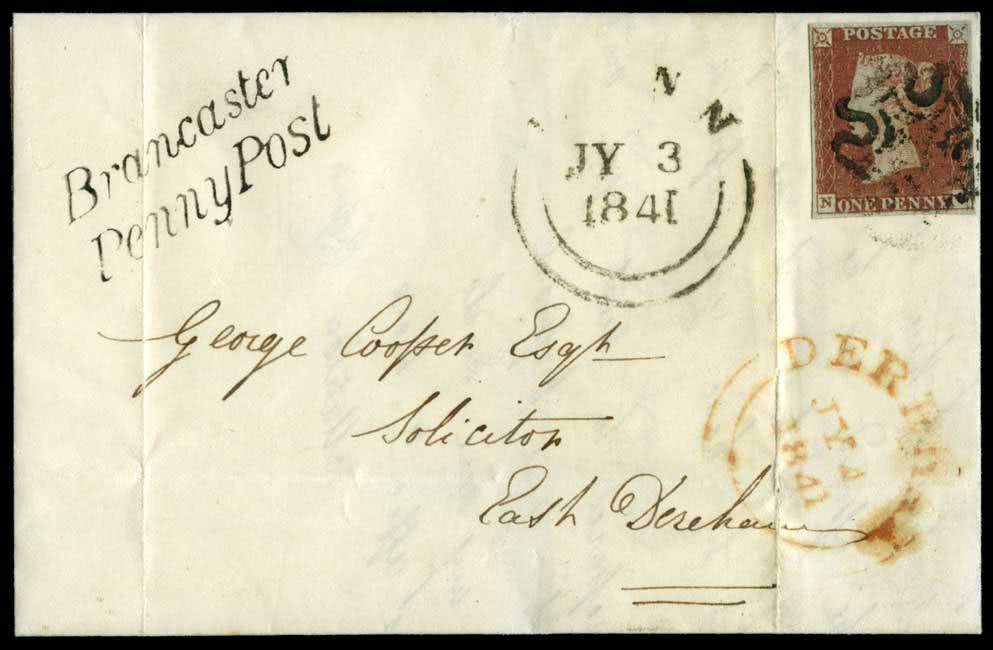 Brancaster
Penny Post
N N
JY 3
1841
POSTAGE
N
ONE PENNY
George Cooper Esqr
Solicitor
East Dereham
DEREHAM
JY 4
1841